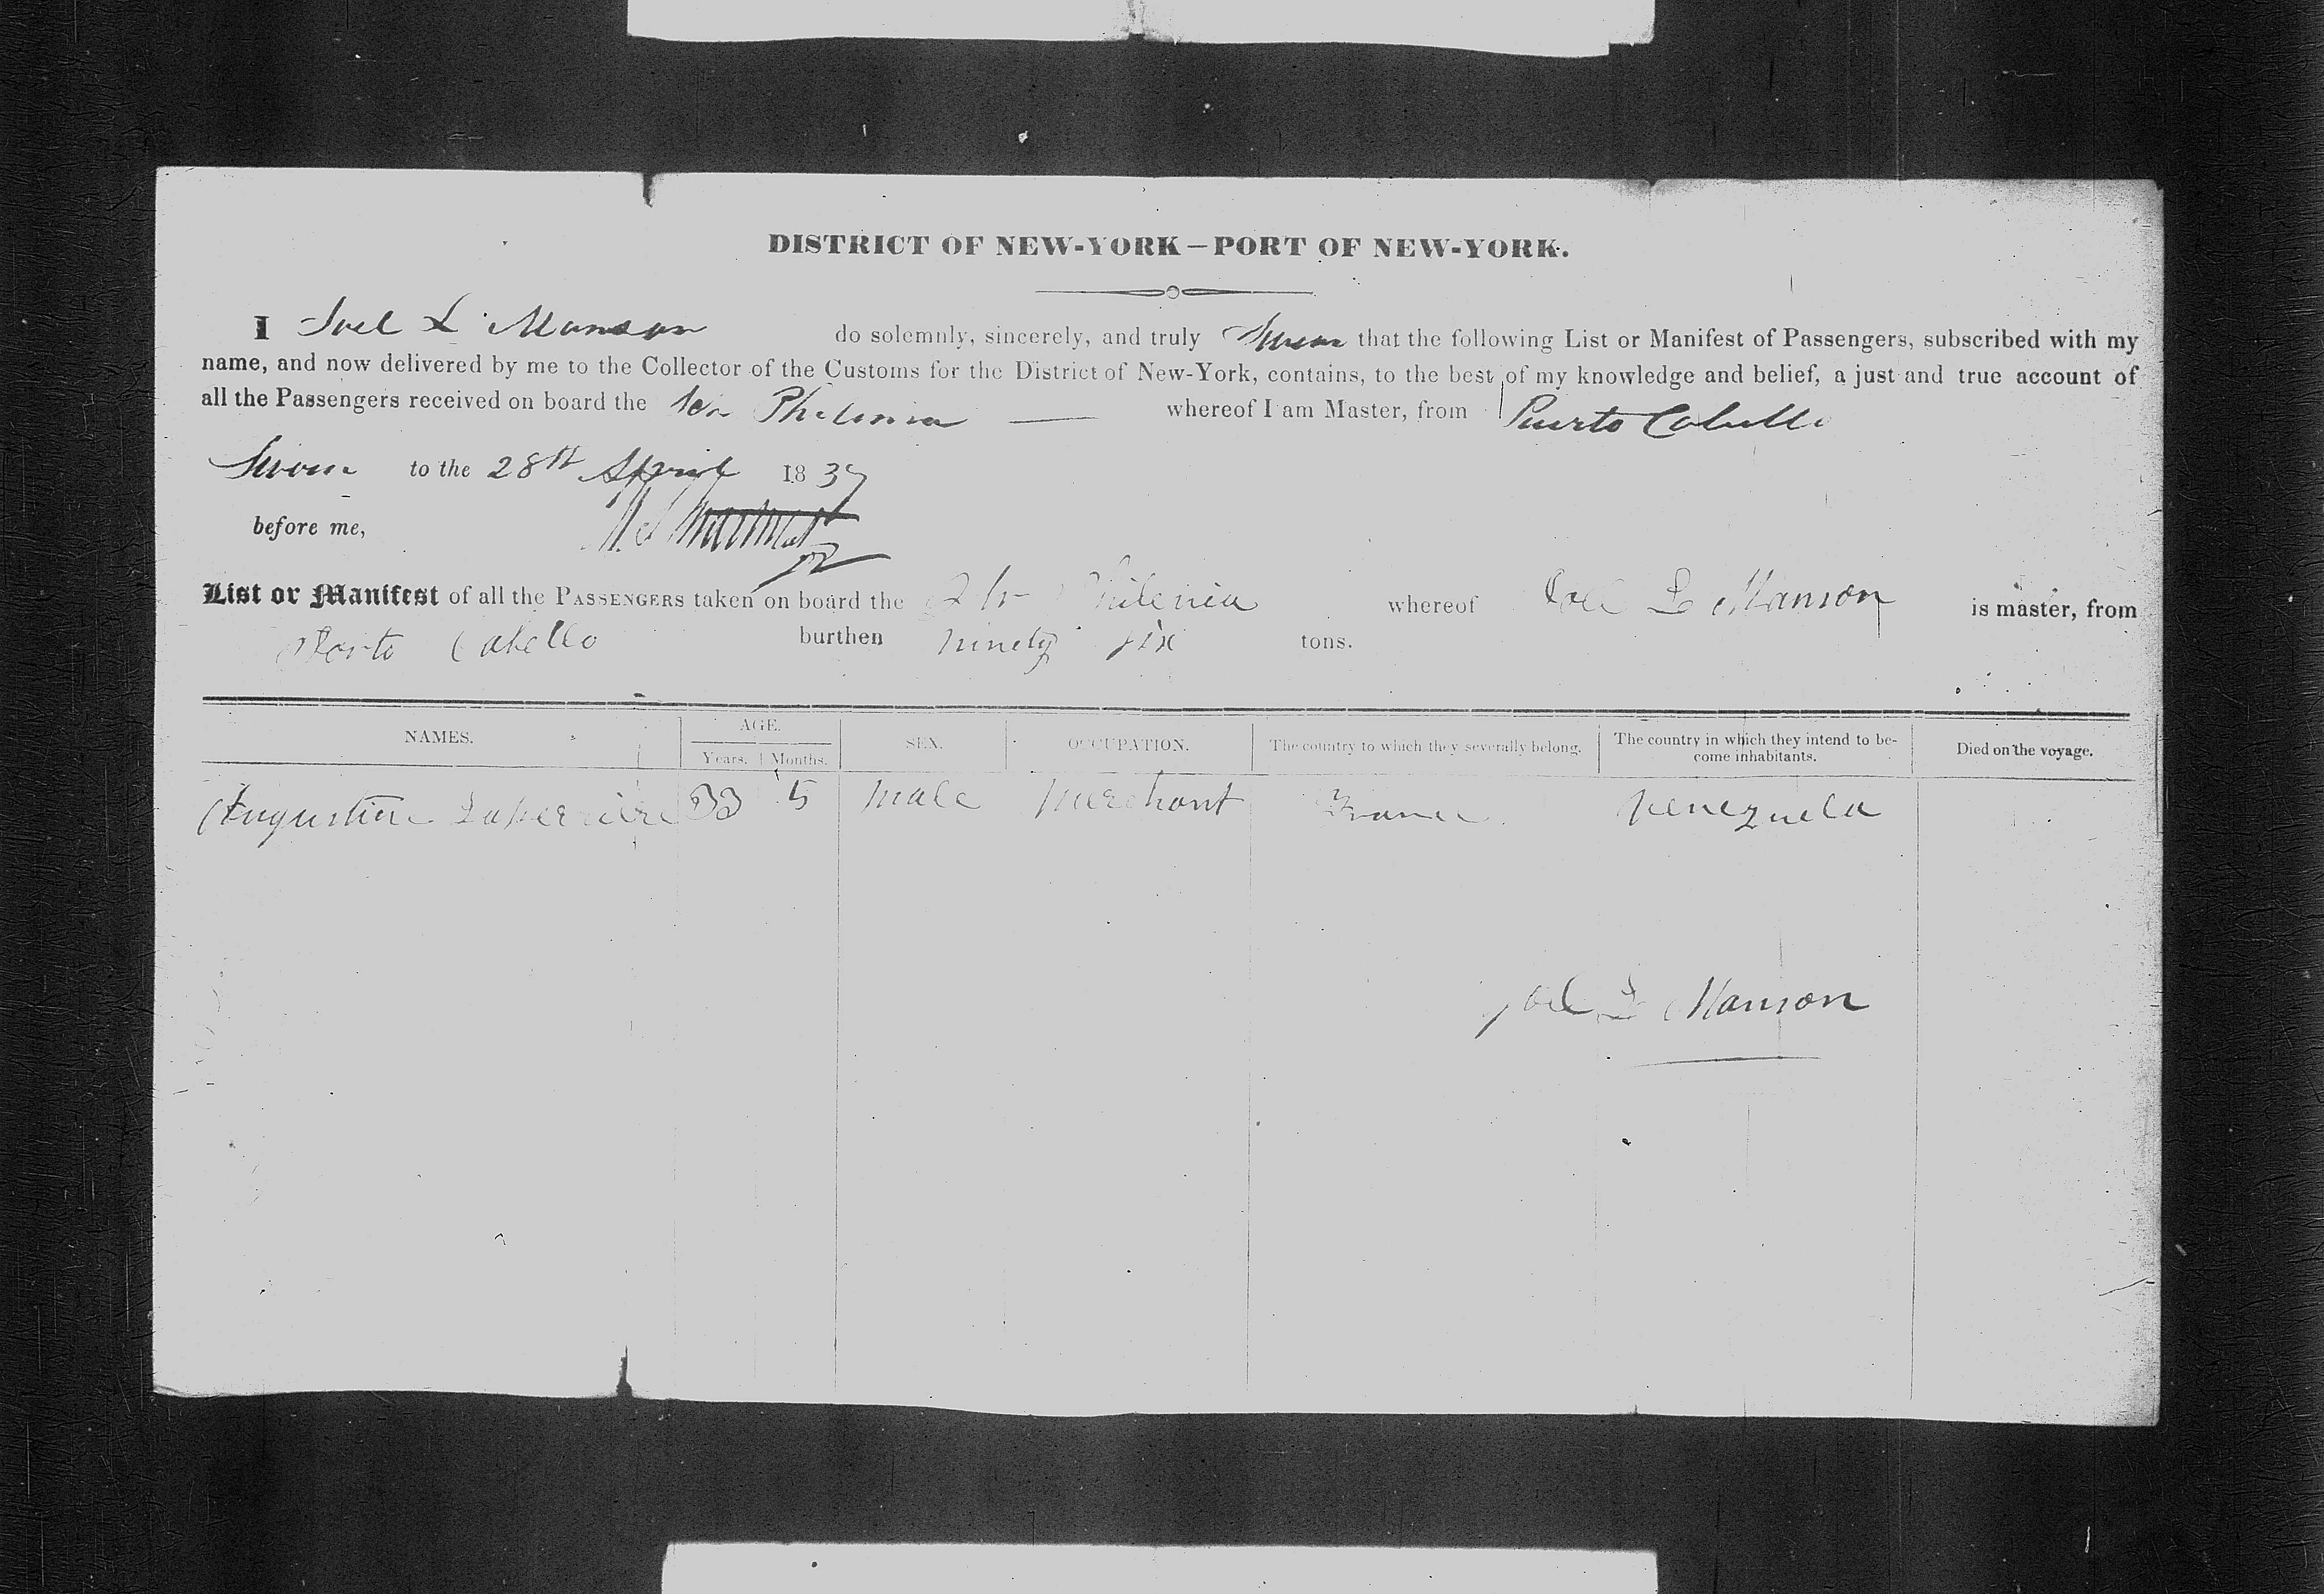 DISTRICT OF NEW-YORK—PORT OF NEW-YORK.
I Joel L Manson do solemnly, sincerely, and truly Swear that the following List or Manifest of Passengers, subscribed with my
name, and now delivered by me to the Collector of the Customs for the District of New-York, contains, to the best of my knowledge and belief, a just and true account of
all the Passengers received on board the Philenia whereof I am Master, from Puerto Cabello
Sworn to the 28th April 1837
before me,
List or Manifest of all the PASSENGERS taken on board the Philenia whereof Joel L Manson is master, from
Porto Cabello burthen ninety six tons.
NAMES. AGE. Years. Months. SEX. OCCUPATION. The country to which they severally belong. The country in which they intend to be-
come inhabitants. Died on the voyage.
Augustine 33 5 male merchant France Venezuela
Joel L Manson